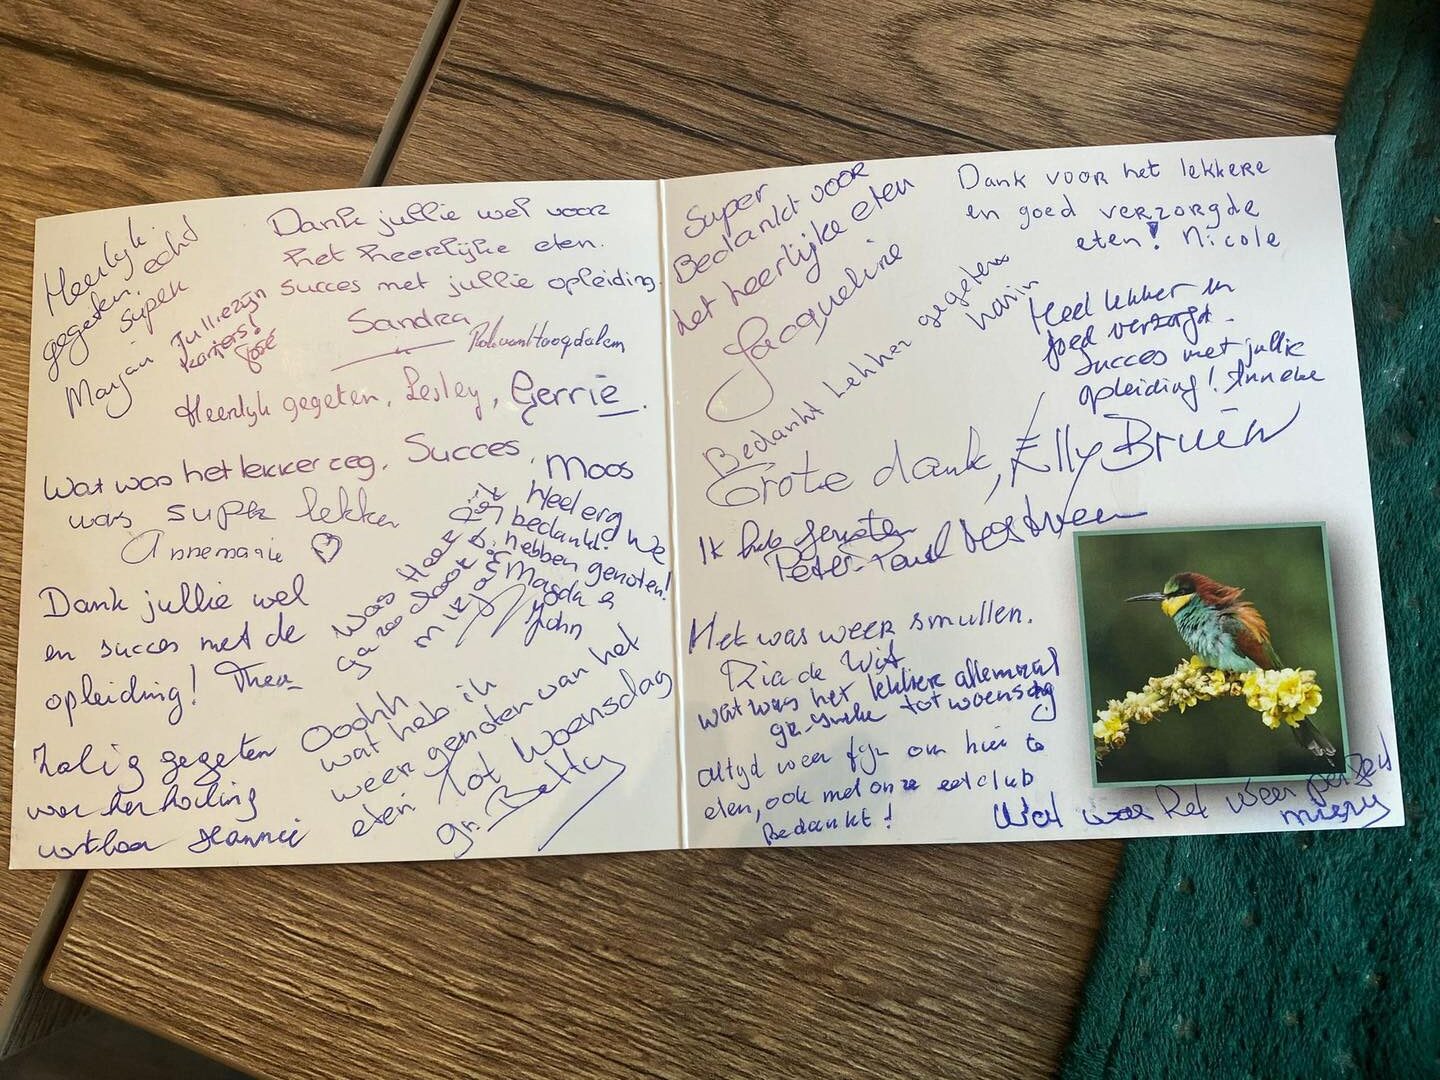 Heerlyk
gegeten, echt
super
Marjan
Jullie zijn
kanjers!
José
Dank jullie wel voor
het heerlijke eten.
succes met jullie opleiding.
Sandra
Rob van Hoogdalem
Heerlyk gegeten, Lesley, Gerrie.
Wat was het lekker zeg. Succes, Moos
was super lekker
Annemarie
Dank jullie wel
en succes met de
opleiding! Thea
Was Heel
Heel erg
bedankt! We
hebben genoten!
Magda &
John
Zalig gegeten
voor herhaling
vatbaar Hannie
Ooohh
wat heb ik
weer genoten van het
eten Tot Woensdag
gr. Betty
Super
Bedankt voor
het heerlijke eten
Jacqueline
Dank voor het lekkere
en goed verzorgde
eten! Nicole
Bedankt Lekker gegeten
Karin
Heel lekker en
goed verzorgd.
Succes met jullie
opleiding! Anneke
Grote dank, Elly Bruin
Ik heb genoten
Peter-Paul
Het was weer smullen.
Ria de Wit
wat was het lekker allemaal
tot woensdag
altyd weer fijn om hier te
eten, ook met onze eetclub
Bedankt!
Wat was het weer